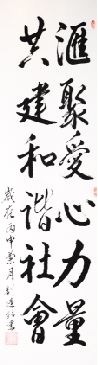 滙聚愛心力量
共建和諧社會
歲在丙申葵月